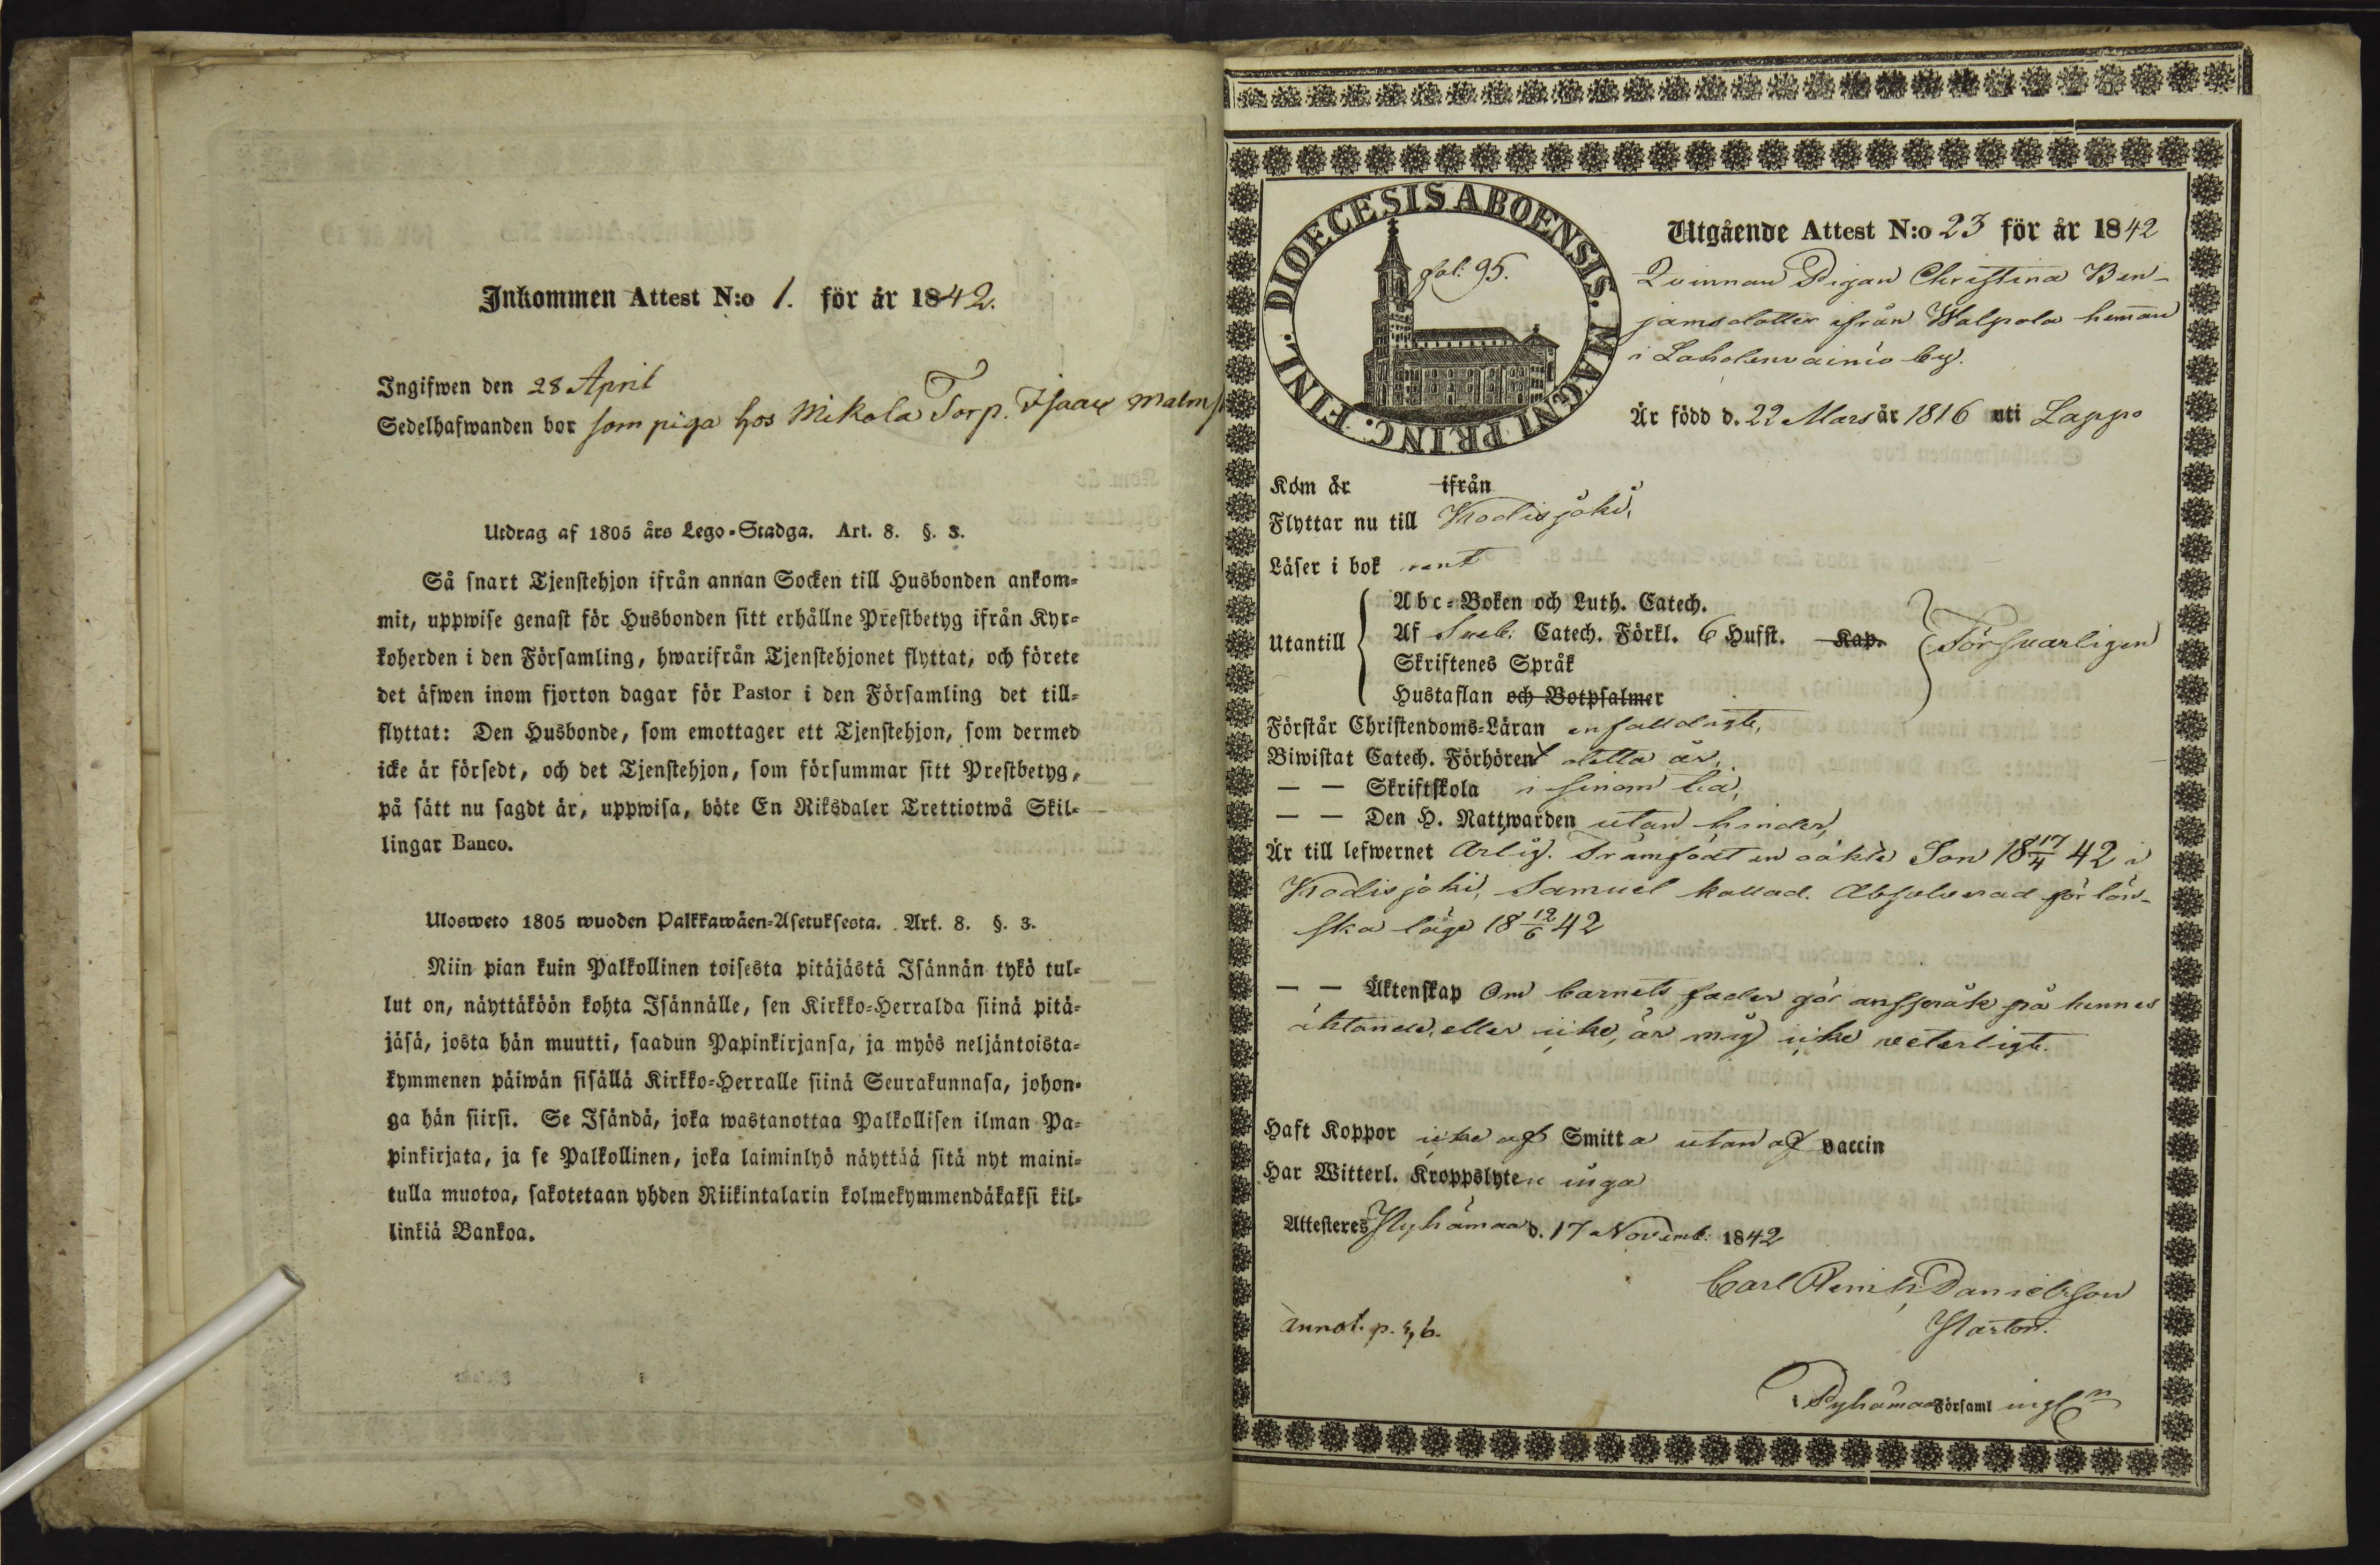 Inkommen Attest N:o 1. för år 1842.
Ingifwen den 28 April
Sedelhafwanden bor som piga hos Mikola Torp. Isaac Malm
Utdrag af 1805 års Lego-Stadga. Art. 8. §. 3.
Så snart Tjenstehjon ifrån annan Socken till Husbonden ankom-
mit, uppwise genast för Husbonden sitt erhållne Prestbetyg ifrån Kyr-
koherden i den Församling, hwarifrån Tjenstehjonet flyttat, och förete
det äfwen inom fjorton dagar för Pastor i den Församling det till-
flyttat: Den Husbonde, som emottager ett Tjenstehjon, som dermed
icke är försedt, och det Tjenstehjon, som försummar sitt Prestbetyg,
på sätt nu sagdt är, uppwisa, böte En Riksdaler Trettiotwå Skil-
lingar Banco.
Ulosweto 1805 wuoden Palkkawäen-Asetuksesta. Art. 8. §. 3.
Niin pian kuin Palkollinen toisesta pitäjästä Isännän tykö tul-
lut on, näyttäköön kohta Isännälle, sen Kirkko-Herralda siinä pitä-
jäsä, josta hän muutti, saadun Papinkirjansa, ja myös neljäntoista-
kymmenen päiwän sisällä Kirkko-Herralle siinä Seurakunnasa, johon-
ga hän siirsi. Se Isändä, joka wastanottaa Palkollisen ilman Pa-
pinkirjata, ja se Palkollinen, joka laiminlyö näyttää sitä nyt maini-
tulla muotoa, sakotetaan yhden Riikintalarin kolmekymmendäkaksi kil-
linkiä Bankoa.
DIOECESIS ABOENSIS. MAGNI PRINC. FINL.
fol. 95.
Utgående Attest N:o 23 för år 1842
Qvinnan Pigan Christina Ben-
jamsdotter ifrån Walpola heman
i Laholenvainio by.
Är född d. 22 Mars år 1816 uti Lappo
Kom år ifrån
Flyttar nu till Kodisjoki,
Läser i bok rent
Utantill
Abc-Boken och Luth. Catech.
Af Sveb. Catech. Förkl. 6 Hufst. Kap.
Skriftenes Språk
Hustaflan och Botpsalmer
Försvarligen
Förstår Christendoms-Läran enfalldigt,
Biwistat Catech. Förhören detta år,
— — Skriftskola i sinom tid,
— — Den H. Nattwarden utan hinder,
Är till lefwernet Ärlig. Framfödt en oäkta Son 18 17/4 42 i
Kodisjoki, Samuel kallad. Absolverad för lön-
ska läge 18 12/6 42
— — Äktenskap Om barnets fader gör anspråk på hennes
äktande, eller icke, är mig icke veterligt.
Haft Koppor icke af Smitta utan af Vaccin
Har Witterl. Kroppslyten inga
Attesteres Pyhämaa d. 17 Novemb. 1842
Carl Reinh. Danielsson
Pastor.
Annot. p. 96.
i Pyhämaa Församlingen